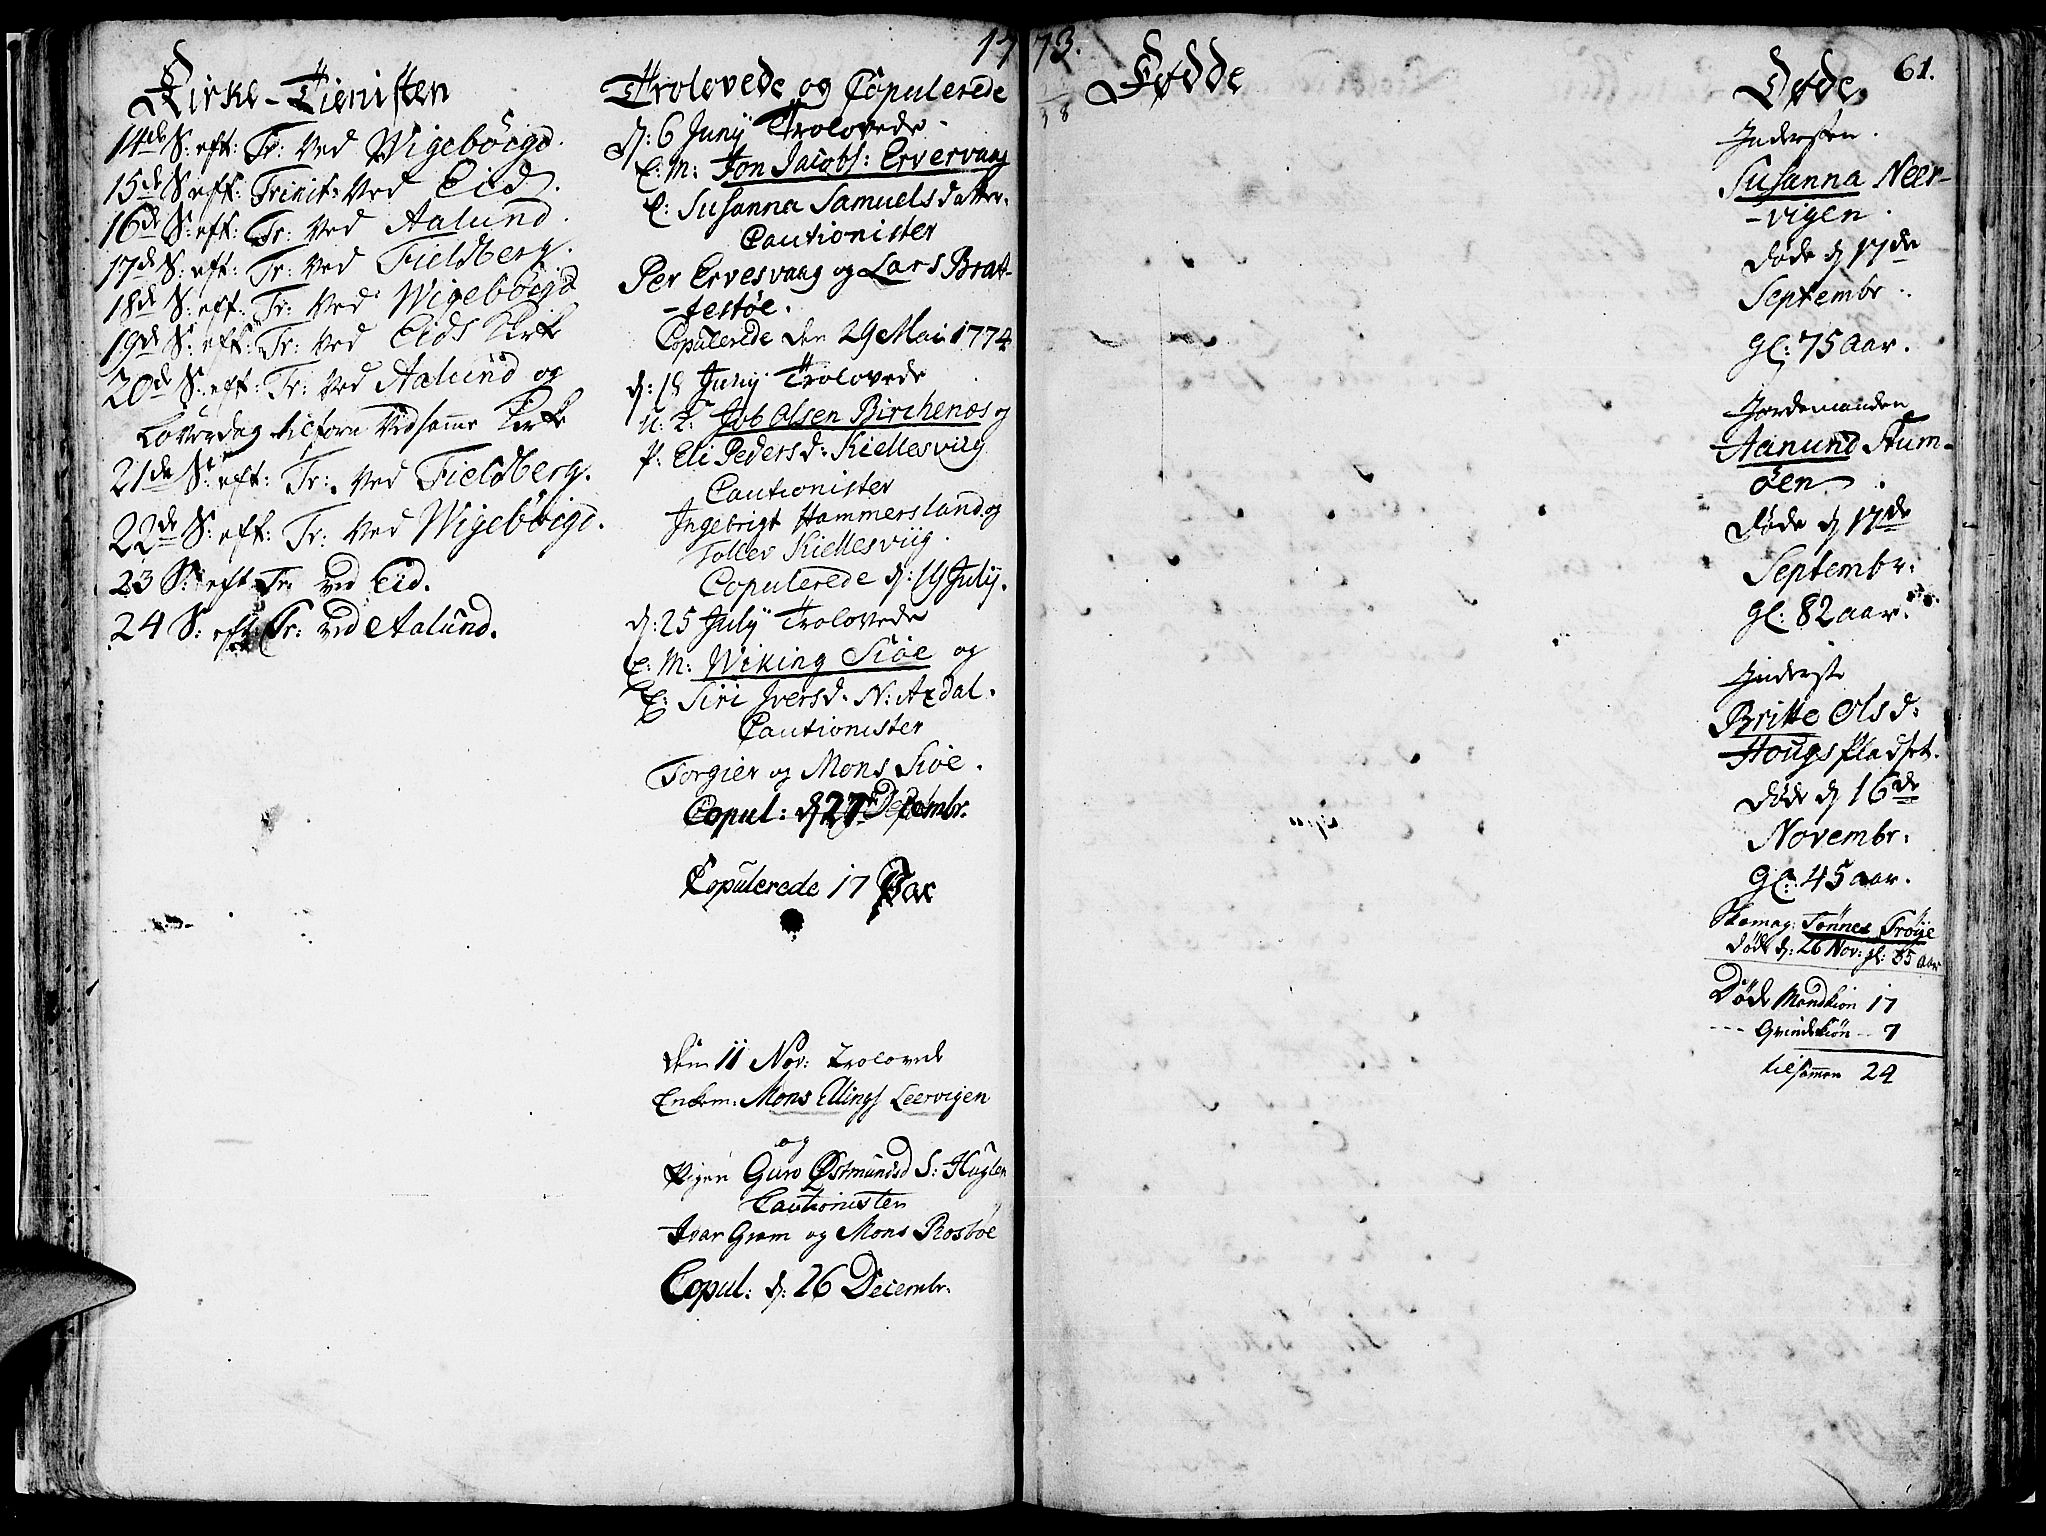 1773.
Kirke-Tienisten
14de S: eft: Tr: Ved Wigebøigd.
15de S: eft: Trinit: Ved Eid.
16de S: eft: Tr: Ved Aalund.
17de S: eft: Tr: Ved Fieldberg.
18de S: eft: Tr: Ved Wigebøigd
19de S: eft: Tr: Ved Eids Kirke
20de S: eft: Tr: Ved Aalund og
Løverdag tilforn Ved samme Kirke
21de S: eft: Tr: Ved Fieldberg.
22de S: eft: Tr: Ved Wigebøigd.
23 S: eft Tr: ved Eid.
24 S: eft: Tr: ved Aalund.
Trolovede og Copulerede
d: 6 Junÿ Trolovede
E: M: Jon Jacobs: Ervervaag
E: Susanna Samuelsdatter.
Cautionister
Per Ervesvaag og Lars Brat-
-testøe.
Copulerede den 29 Mai 1774
d: 18 Junÿ Trolovede
U: K: Job Olsen Birchenæs og
P: Eli Pedersd: Kiellesviig
Cautionister
Ingebrigt Hammersland og
Tollev Kiellesviig.
Copulerede d: 19 Julÿ.
d: 25 Julÿ Trolovede
E: M: Wiking Siøe og
E: Siri Iversd. N: Axdal.
Cautionister
Torgier og Mons Siøe.
Copul: d 27 Decembr.
Copulerede 17 Par
den 11 Nov: Trolovede
Enkem: Mons Ellings Leervigen
og
Pigen Guro Østmundsd S: Huglen
Cautionisten
Ivar Gram og Mons Rosbøe
Copul: d: 26 Decembr.
Fødde
61.
Døde
Indersten.
Susanna Neer-
-vigen.
døde d 17de
Septembr.
gl: 75 Aar.
Jordemanden
Aanund Stum-
øen.
døde d 17de
Septembr:
gl: 82 aar.
Inderste
Britte Olsd:
Hougs Pladset.
døde d 16de
Novembr:
gl: 45 aar.
Skomag: Tønnes Trøÿe
døde d: 26 Nov: gl: 85 aar
Døde Mandkiøn 17
--- Qvindekiøn - 7
tilsamen 24